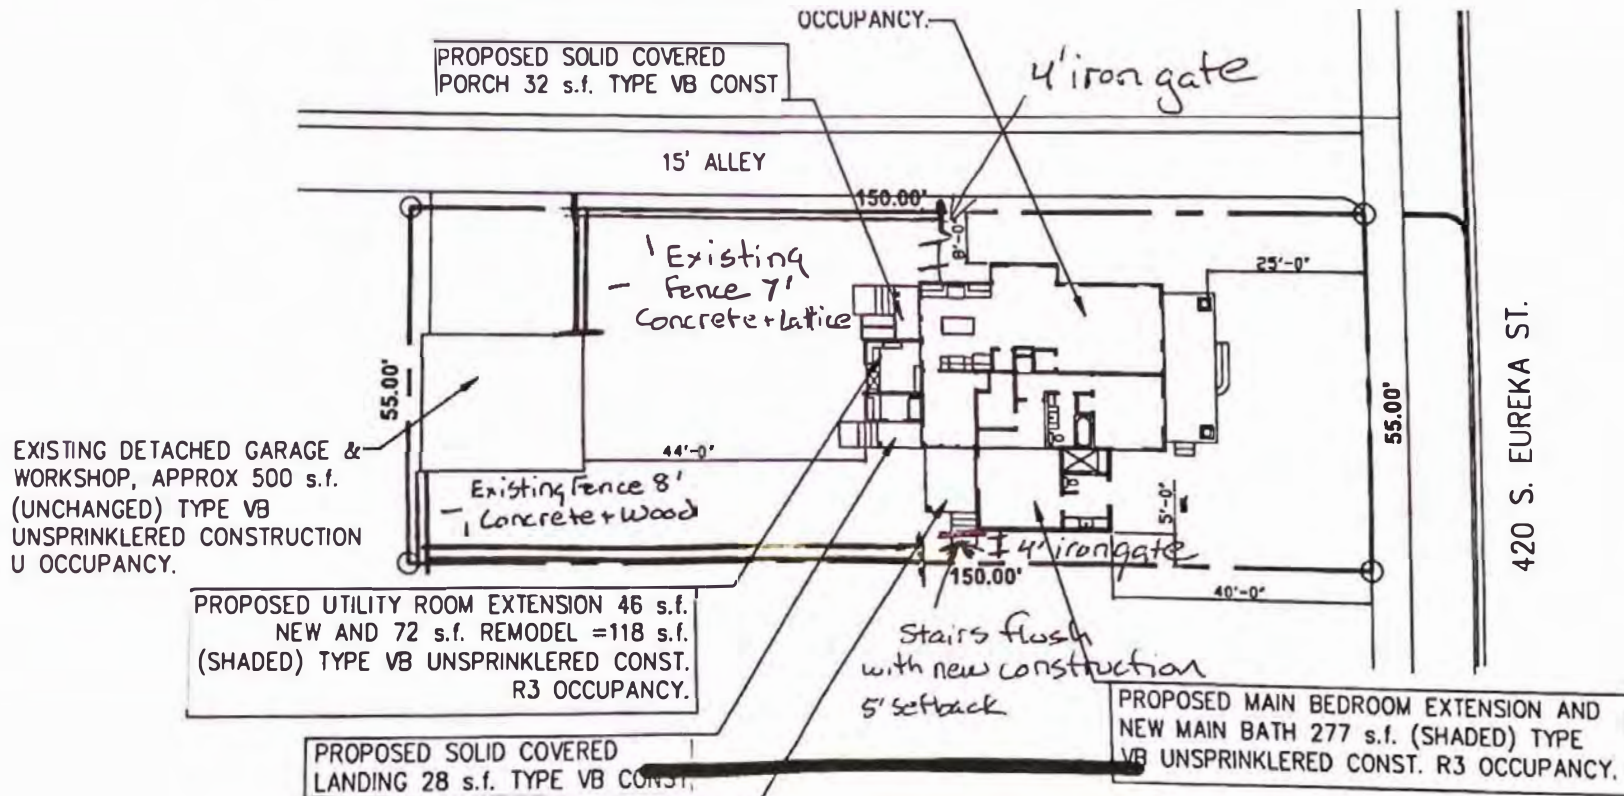 OCCUPANCY.
PROPOSED SOLID COVERED
PORCH 32 s.f. TYPE VB CONST
4' iron gate
15' ALLEY
150.00'
8'-0"
25'-0"
Existing
Fence 7'
Concrete + Lattice
55.00'
55.00'
420 S. EUREKA ST.
EXISTING DETACHED GARAGE &
WORKSHOP, APPROX 500 s.f.
(UNCHANGED) TYPE VB
UNSPRINKLERED CONSTRUCTION
U OCCUPANCY.
44'-0"
Existing Fence 8'
Concrete + Wood
5'-0"
4' iron gate
150.00'
40'-0"
PROPOSED UTILITY ROOM EXTENSION 46 s.f.
NEW AND 72 s.f. REMODEL =118 s.f.
(SHADED) TYPE VB UNSPRINKLERED CONST.
R3 OCCUPANCY.
Stairs flush
with new construction
5' setback
PROPOSED MAIN BEDROOM EXTENSION AND
NEW MAIN BATH 277 s.f. (SHADED) TYPE
VB UNSPRINKLERED CONST. R3 OCCUPANCY.
PROPOSED SOLID COVERED
LANDING 28 s.f. TYPE VB CONST.